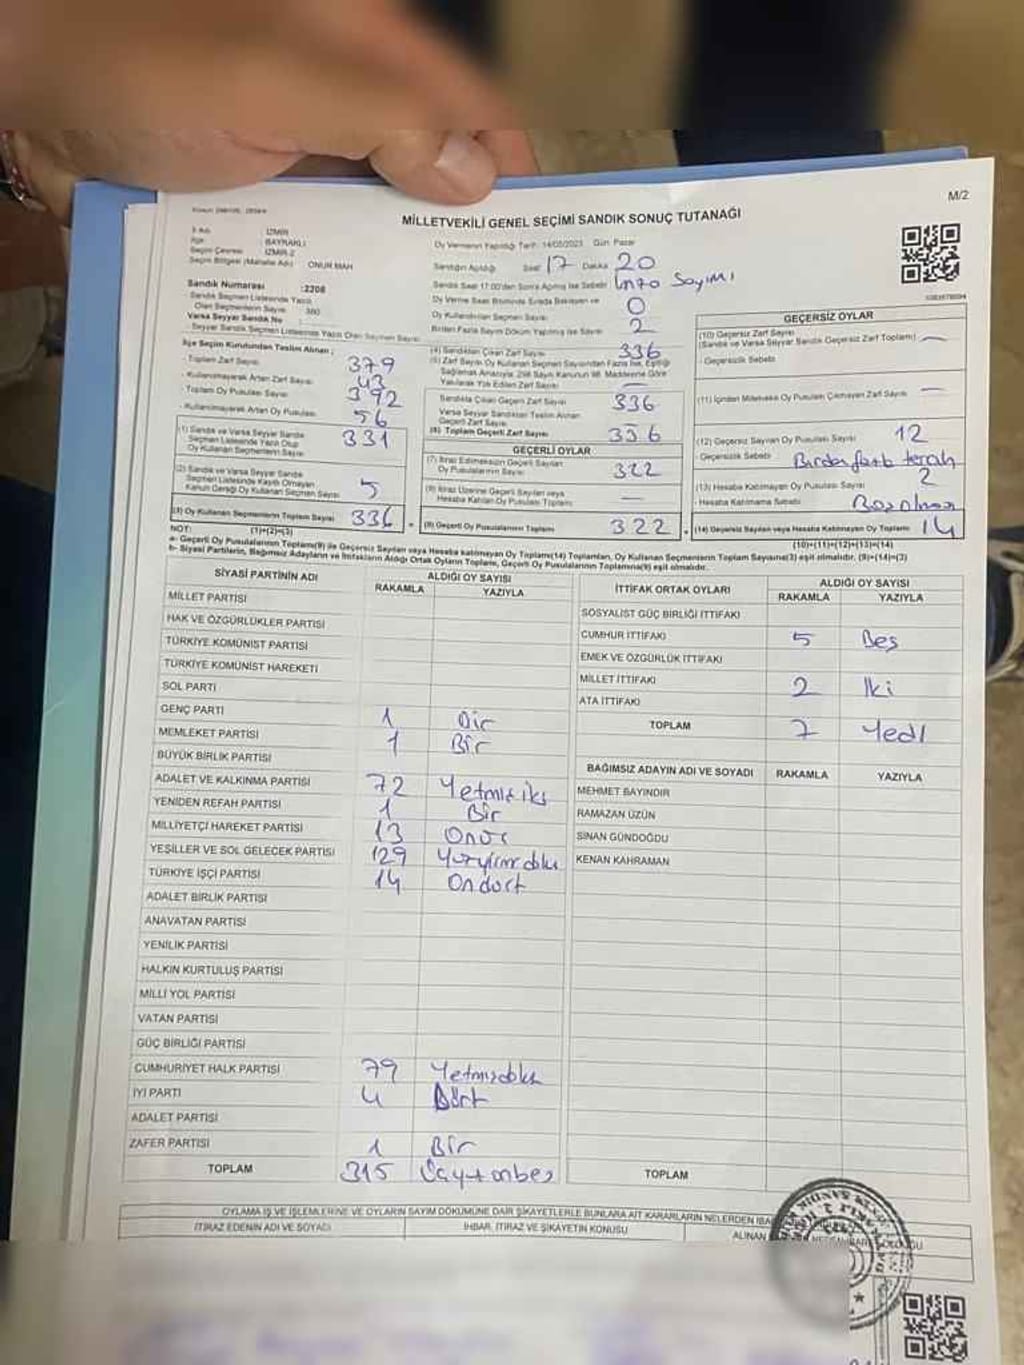 M/2
MİLLETVEKİLİ GENEL SEÇİMİ SANDIK SONUÇ TUTANAĞI
İl Adı: İZMİR
İlçe: BAYRAKLI
Seçim Çevresi: İZMİR-2
Seçim Bölgesi (Mahalle Adı) ONUR MAH
Sandık Numarası :2208
Sandık Seçmen Listesinde Yazılı
Olan Seçmenlerin Sayısı 380
Varsa Seyyar Sandık No
Seyyar Sandık Seçmen Listesinde Yazılı Olan Seçmen Sayısı
Oy Vermenin Yapıldığı Tarih: 14/05/2023 Gün: Pazar
Sandığın Açıldığı Saat 17 Dakika 20
Sandık Saat 17:00'den Sonra Açılmış İse Sebebi İmza Sayımı
Oy Verme Saati Bitiminde Sırada Bekleyen ve
Oy Kullandırılan Seçmen Sayısı 0
Birden Fazla Sayım Döküm Yapılmış İse Sayısı 2
İlçe Seçim Kurulundan Teslim Alınan ;
- Toplam Zarf Sayısı 379
- Kullanılmayarak Artan Zarf Sayısı 43
- Toplam Oy Pusulası Sayısı 392
- Kullanılmayarak Artan Oy Pusulası 56
(1) Sandık ve Varsa Seyyar Sandık
Seçmen Listesinde Yazılı Olup
Oy Kullanan Seçmenlerin Sayısı 331
(2) Sandık ve Varsa Seyyar Sandık
Seçmen Listesinde Kaydı Olmayan
Kanun Gereği Oy Kullanan Seçmen Sayısı 5
(3) Oy Kullanan Seçmenlerin Toplam Sayısı 336
(1)+(2)=(3)
(4) Sandıktan Çıkan Zarf Sayısı 336
(5) Zarf Sayısı Oy Kullanan Seçmen Sayısından Fazla İse, Eşitliği
Sağlamak Amacıyla, 298 Sayılı Kanunun 98. Maddesine Göre
Yakılarak Yok Edilen Zarf Sayısı —
Sandıkta Çıkan Geçerli Zarf Sayısı 336
Varsa Seyyar Sandıktan Teslim Alınan
Geçerli Zarf Sayısı
(6) Toplam Geçerli Zarf Sayısı 336
GEÇERLİ OYLAR
(7) İtiraz Edilmeksizin Geçerli Sayılan
Oy Pusulalarının Sayısı 322
(8) İtiraz Üzerine Geçerli Sayılan veya
Hesaba Katılan Oy Pusulası Toplamı —
(9) Geçerli Oy Pusulalarının Toplamı 322
GEÇERSİZ OYLAR
(10) Geçersiz Zarf Sayısı
(Sandık ve Varsa Seyyar Sandık Geçersiz Zarf Toplamı) —
- Geçersizlik Sebebi
(11) İçinden Milletvekili Oy Pusulası Çıkmayan Zarf Sayısı —
(12) Geçersiz Sayılan Oy Pusulası Sayısı 12
- Geçersizlik Sebebi
(13) Hesaba Katılmayan Oy Pusulası Sayısı 2
- Hesaba Katılmama Sebebi
(14) Geçersiz Sayılan veya Hesaba Katılmayan Oy Toplamı 14
(10)+(11)+(12)+(13)=(14)
NOT:
a- Geçerli Oy Pusulalarının Toplamı(9) ile Geçersiz Sayılan veya Hesaba katılmayan Oy Toplamı(14) Toplamları, Oy Kullanan Seçmenlerin Toplam Sayısına(3) eşit olmalıdır. (9)+(14)=(3)
b- Siyasi Partilerin, Bağımsız Adayların ve İttifakların Aldığı Ortak Oyların Toplamı, Geçerli Oy Pusulalarının Toplamına(9) eşit olmalıdır.
SİYASİ PARTİNİN ADI ALDIĞI OY SAYISI
RAKAMLA YAZIYLA
MİLLET PARTİSİ
HAK VE ÖZGÜRLÜKLER PARTİSİ
TÜRKİYE KOMÜNİST PARTİSİ
TÜRKİYE KOMÜNİST HAREKETİ
SOL PARTİ
GENÇ PARTİ 1 Bir
MEMLEKET PARTİSİ 1 Bir
BÜYÜK BİRLİK PARTİSİ
ADALET VE KALKINMA PARTİSİ 72 Yetmişiki
YENİDEN REFAH PARTİSİ 1 Bir
MİLLİYETÇİ HAREKET PARTİSİ 13 Onüç
YEŞİLLER VE SOL GELECEK PARTİSİ 129
TÜRKİYE İŞÇİ PARTİSİ 14 Ondört
ADALET BİRLİK PARTİSİ
ANAVATAN PARTİSİ
YENİLİK PARTİSİ
HALKIN KURTULUŞ PARTİSİ
MİLLİ YOL PARTİSİ
VATAN PARTİSİ
GÜÇ BİRLİĞİ PARTİSİ
CUMHURİYET HALK PARTİSİ 79
İYİ PARTİ 4 Dört
ADALET PARTİSİ
ZAFER PARTİSİ 1 Bir
TOPLAM 315
İTTİFAK ORTAK OYLARI ALDIĞI OY SAYISI
RAKAMLA YAZIYLA
SOSYALİST GÜÇ BİRLİĞİ İTTİFAKI
CUMHUR İTTİFAKI 5 Beş
EMEK VE ÖZGÜRLÜK İTTİFAKI
MİLLET İTTİFAKI 2 İki
ATA İTTİFAKI
TOPLAM 7 Yedi
BAĞIMSIZ ADAYIN ADI VE SOYADI RAKAMLA YAZIYLA
MEHMET BAYINDIR
RAMAZAN ÜZÜN
SİNAN GÜNDOĞDU
KENAN KAHRAMAN
TOPLAM
OYLAMA İŞ VE İŞLEMLERİNE VE OYLARIN SAYIM DÖKÜMÜNE DAİR ŞİKAYETLERLE BUNLARA AİT KARARLARIN NELERDEN İBA
İTİRAZ EDENİN ADI VE SOYADI İHBAR, İTİRAZ VE ŞİKAYETİN KONUSU ALINAN